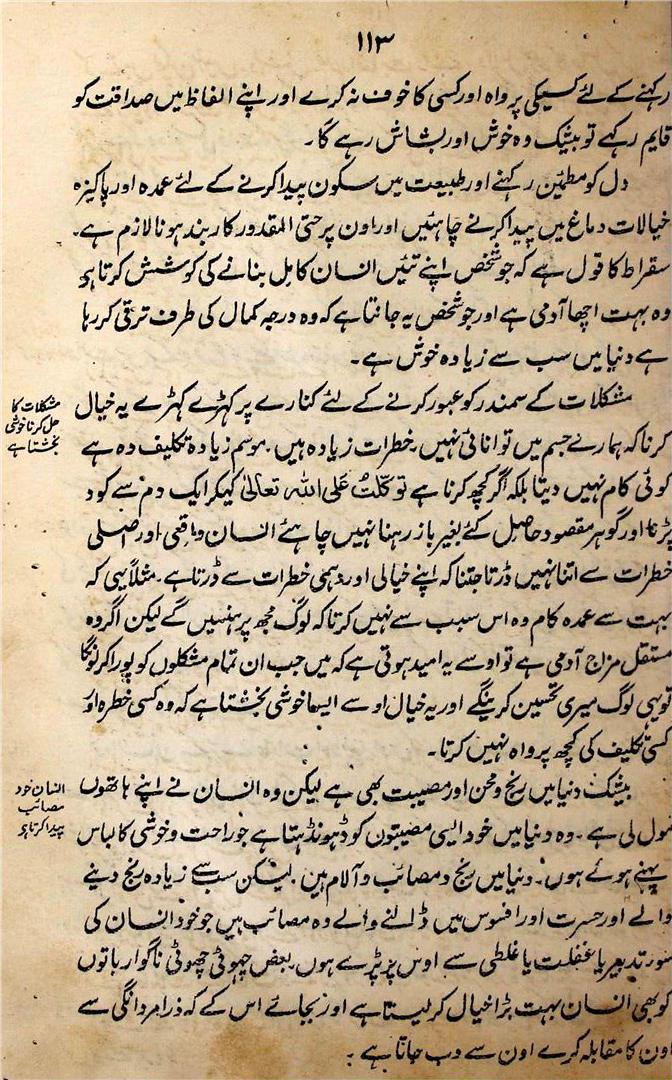 ۱۱۳
رکہنے کے لئے کسیکی پرواہ اور کسی کا خوف نہ کرے اور اپنے الفاظ میں صداقت کو
قایم رکہے تو بیشک وہ خوش اور بشاش رہے گا۔
دل کو مطمئن رکہنے اور طبیعت میں سکون پیدا کرنے کے لئے عمدہ اور پاکیزہ
خیالات دماغ میں پیدا کرنے چاہئیں اور اون پر حتی المقدور کاربند ہونا لازم ہے۔
سقراط کا قول ہے کہ جو شخص اپنے تئیں انسان کامل بنانے کی کوشش کرتا ہے
وہ بہت اچھا آدمی ہے اور جو شخص یہ جانتا ہے کہ وہ درجہ کمال کی طرف ترقی کر رہا
ہے دنیا میں سب سے زیادہ خوش ہے۔
مشکلات کا
حل کرنا خوشی
بخشتا ہے
مشکلات کے سمندر کو عبور کرنے کے لئے کنارے پر کہڑے کہڑے یہ خیال
کرنا کہ ہمارے جسم میں توانائی نہیں، خطرات زیادہ ہیں، موسم زیادہ تکلیف دہ ہے
کوئی کام نہیں دیتا بلکہ اگر کچھ کرنا ہے تو توکلت علی اللہ تعالیٰ کہکر ایک دم سے کود
پڑنا اور گوہر مقصود حاصل کئے بغیر باز رہنا نہیں چاہئے انسان واقعی اور اصلی
خطرات سے اتنا نہیں ڈرتا جتنا کہ اپنے خیالی اور وہمی خطرات سے ڈرتا ہے۔ مثلاً یہی کہ
بہت سے عمدہ کام وہ اس سبب سے نہیں کرتا کہ لوگ مجھ پر ہنسیں گے لیکن اگر وہ
مستقل مزاج آدمی ہے تو اوسے یہ امید ہوتی ہے کہ میں جب ان تمام مشکلوں کو پورا کرلونگا
تو یہی لوگ میری تحسین کرینگے اور یہ خیال اوسے ایسا خوشی بخشتا ہے کہ وہ کسی خطرہ اور
کسی تکلیف کی کچھ پرواہ نہیں کرتا۔
انسان خود
مصائب
پیدا کرتا ہے
بیشک دنیا میں رنج و محن اور مصیبت بھی ہے لیکن وہ انسان نے اپنے ہاتھوں
مول لی ہے۔ وہ دنیا میں خود ایسی مصیبتوں کو ڈہونڈہتا ہے جو راحت و خوشی کا لباس
پہنے ہوئے ہوں۔ دنیا میں رنج و مصائب و آلام ہیں۔ لیکن سب سے زیادہ رنج دینے
والے اور حسرت اور افسوس میں ڈالنے والے وہ مصائب ہیں جو خود انسان کی
سوء تدبیر یا غفلت یا غلطی سے اوس پر پڑے ہوں بعض چہوٹی چھوٹی ناگوار باتوں
کو بھی انسان بہت بڑا خیال کر لیتا ہے اور بجائے اس کے کہ ذرا مردانگی سے
اون کا مقابلہ کرے اون سے دب جاتا ہے۔